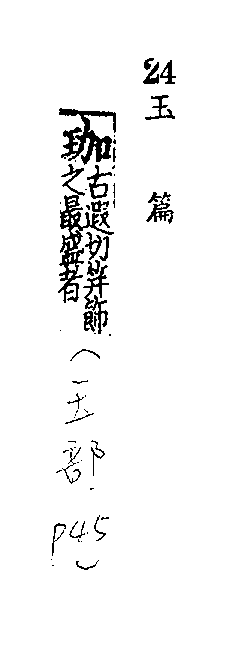 24
玉篇
珈古遐切笄飾
之最盛者
(玉部
P45)